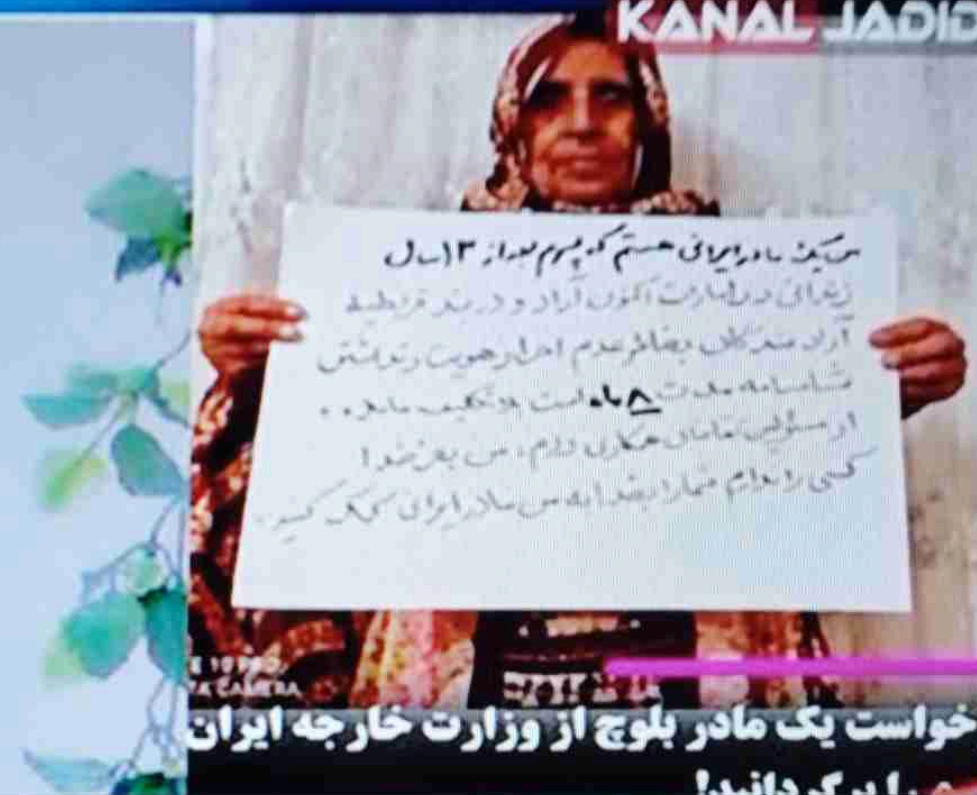 KANAL JADID
من یک مادر ایرانی هستم که پسرم بعد از ۱۳ سال
زندانی در امارات اکنون آزاد و در بند قرنطینه
آزاد شدگان بخاطر عدم احراز هویت و نداشتن
شناسنامه مدت ۸ ماه است بلاتکلیف مانده
از مسئولین تقاضای همکاری دارم، من بغیر خدا
کسی را ندارم شما را بخدا به من مادر ایرانی کمک کنید.
خواست یک مادر بلوچ از وزارت خارجه ایران
را برگردانید!